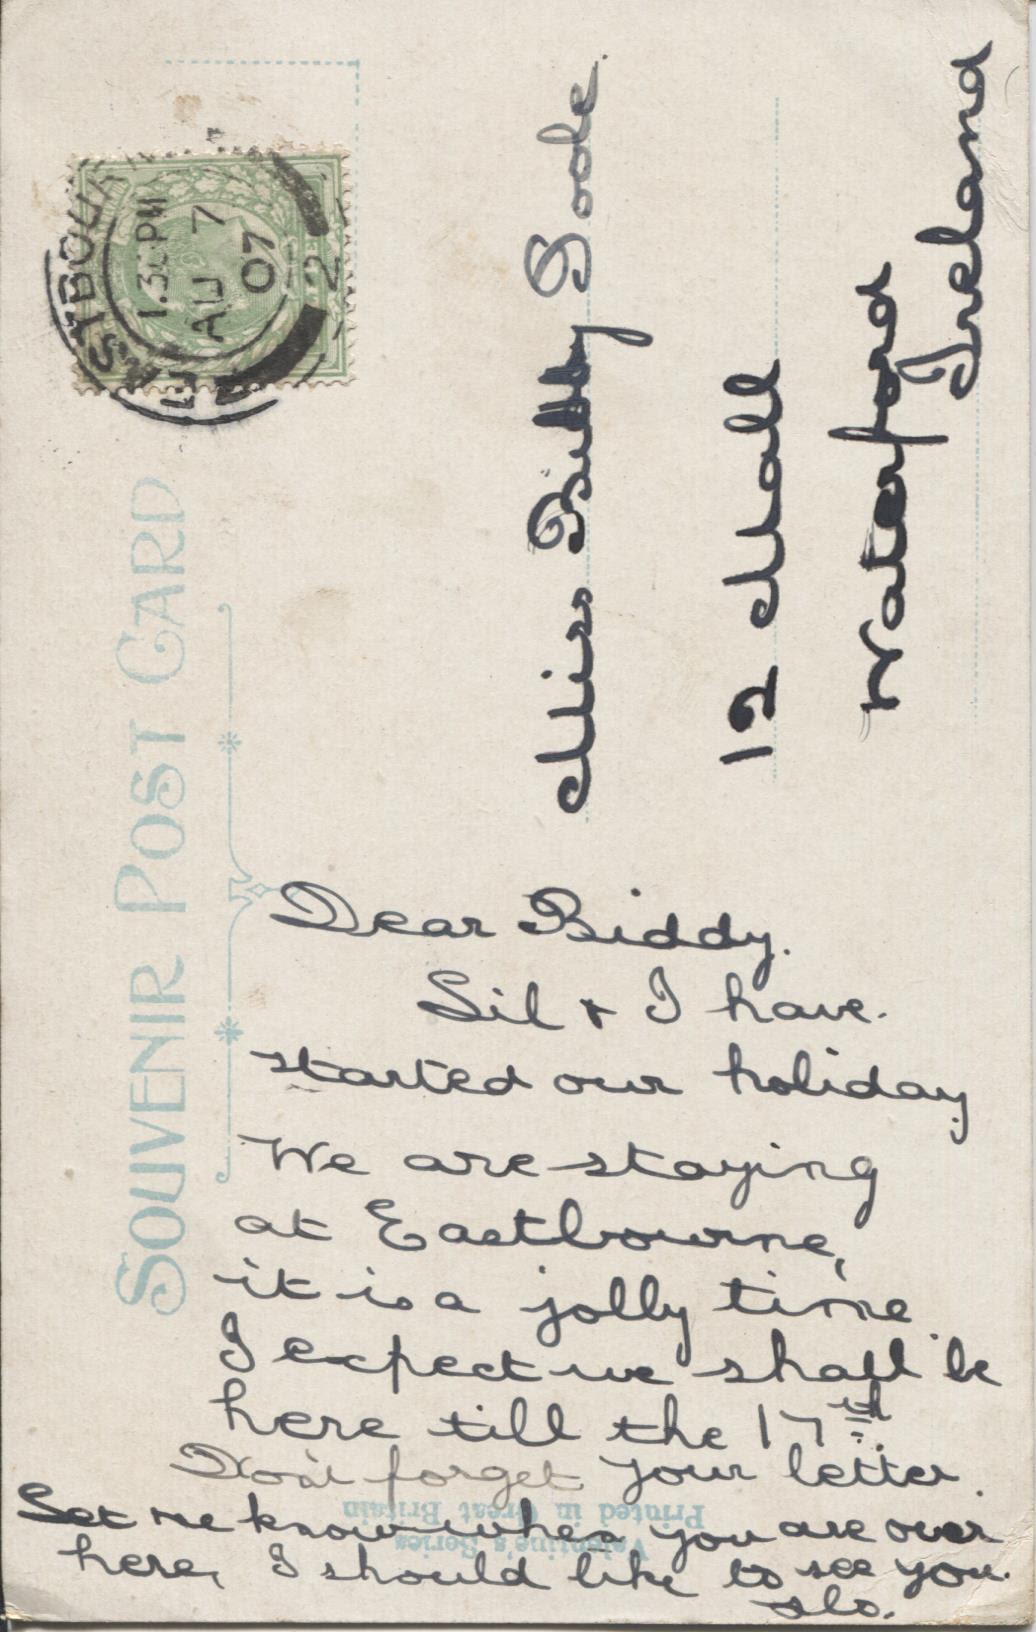 SOUVENIR POST CARD
EASTBOUR
1.30 PM
AU 7
07
2
Miss Biddy Goole.
12 Mall
Waterford
Ireland
Dear Biddy.
Sil + I have.
started our holiday
We are staying
at Eastbourne,
it is a jolly time.
I expect we shall be
here till the 17th.
Don't forget your letter.
Let me know when you are over
here, I should like to see you.
Printed in Great Britain
Valentine's Series